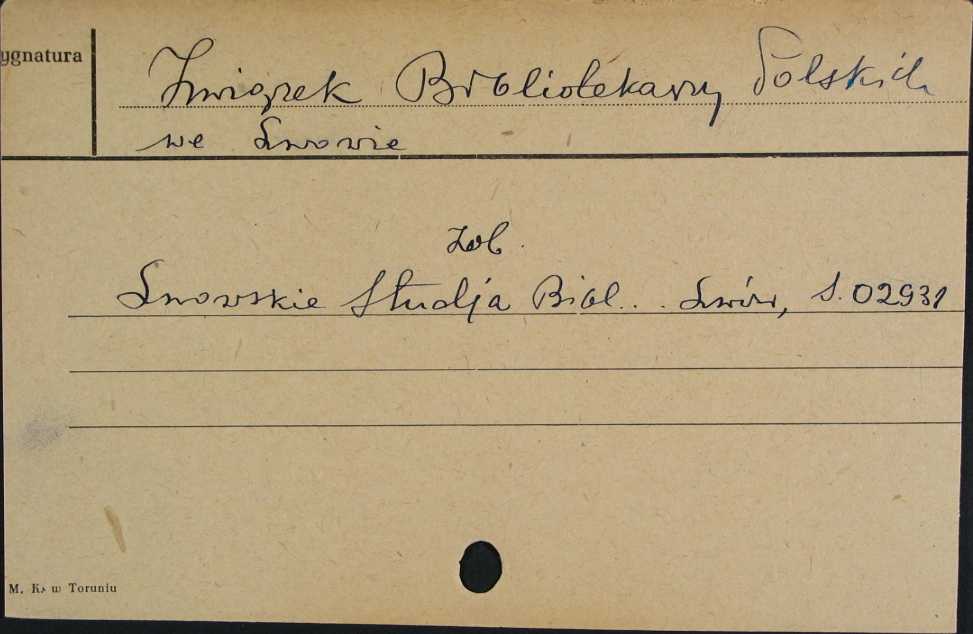 ygnatura
Związek Bibliotekarzy Polskich
we Lwowie
Zob.
Lwowskie Studja Bibl... Lwów, S. 02931
M. K. w Toruniu